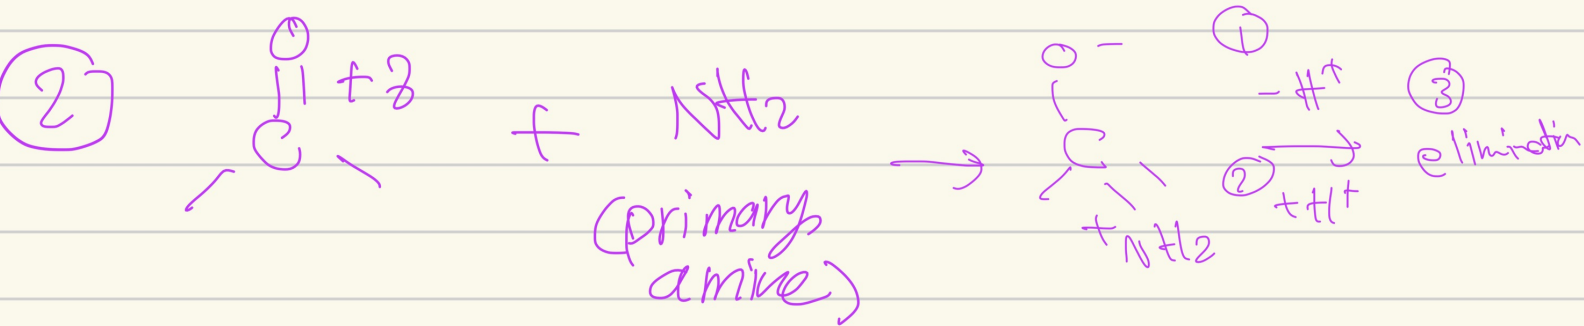 ②
O
|| +8
C
+
NH2
(primary
amine)
→
O⁻
|
C
+NH2
①
-H⁺
→
②
+H⁺
③
elimination